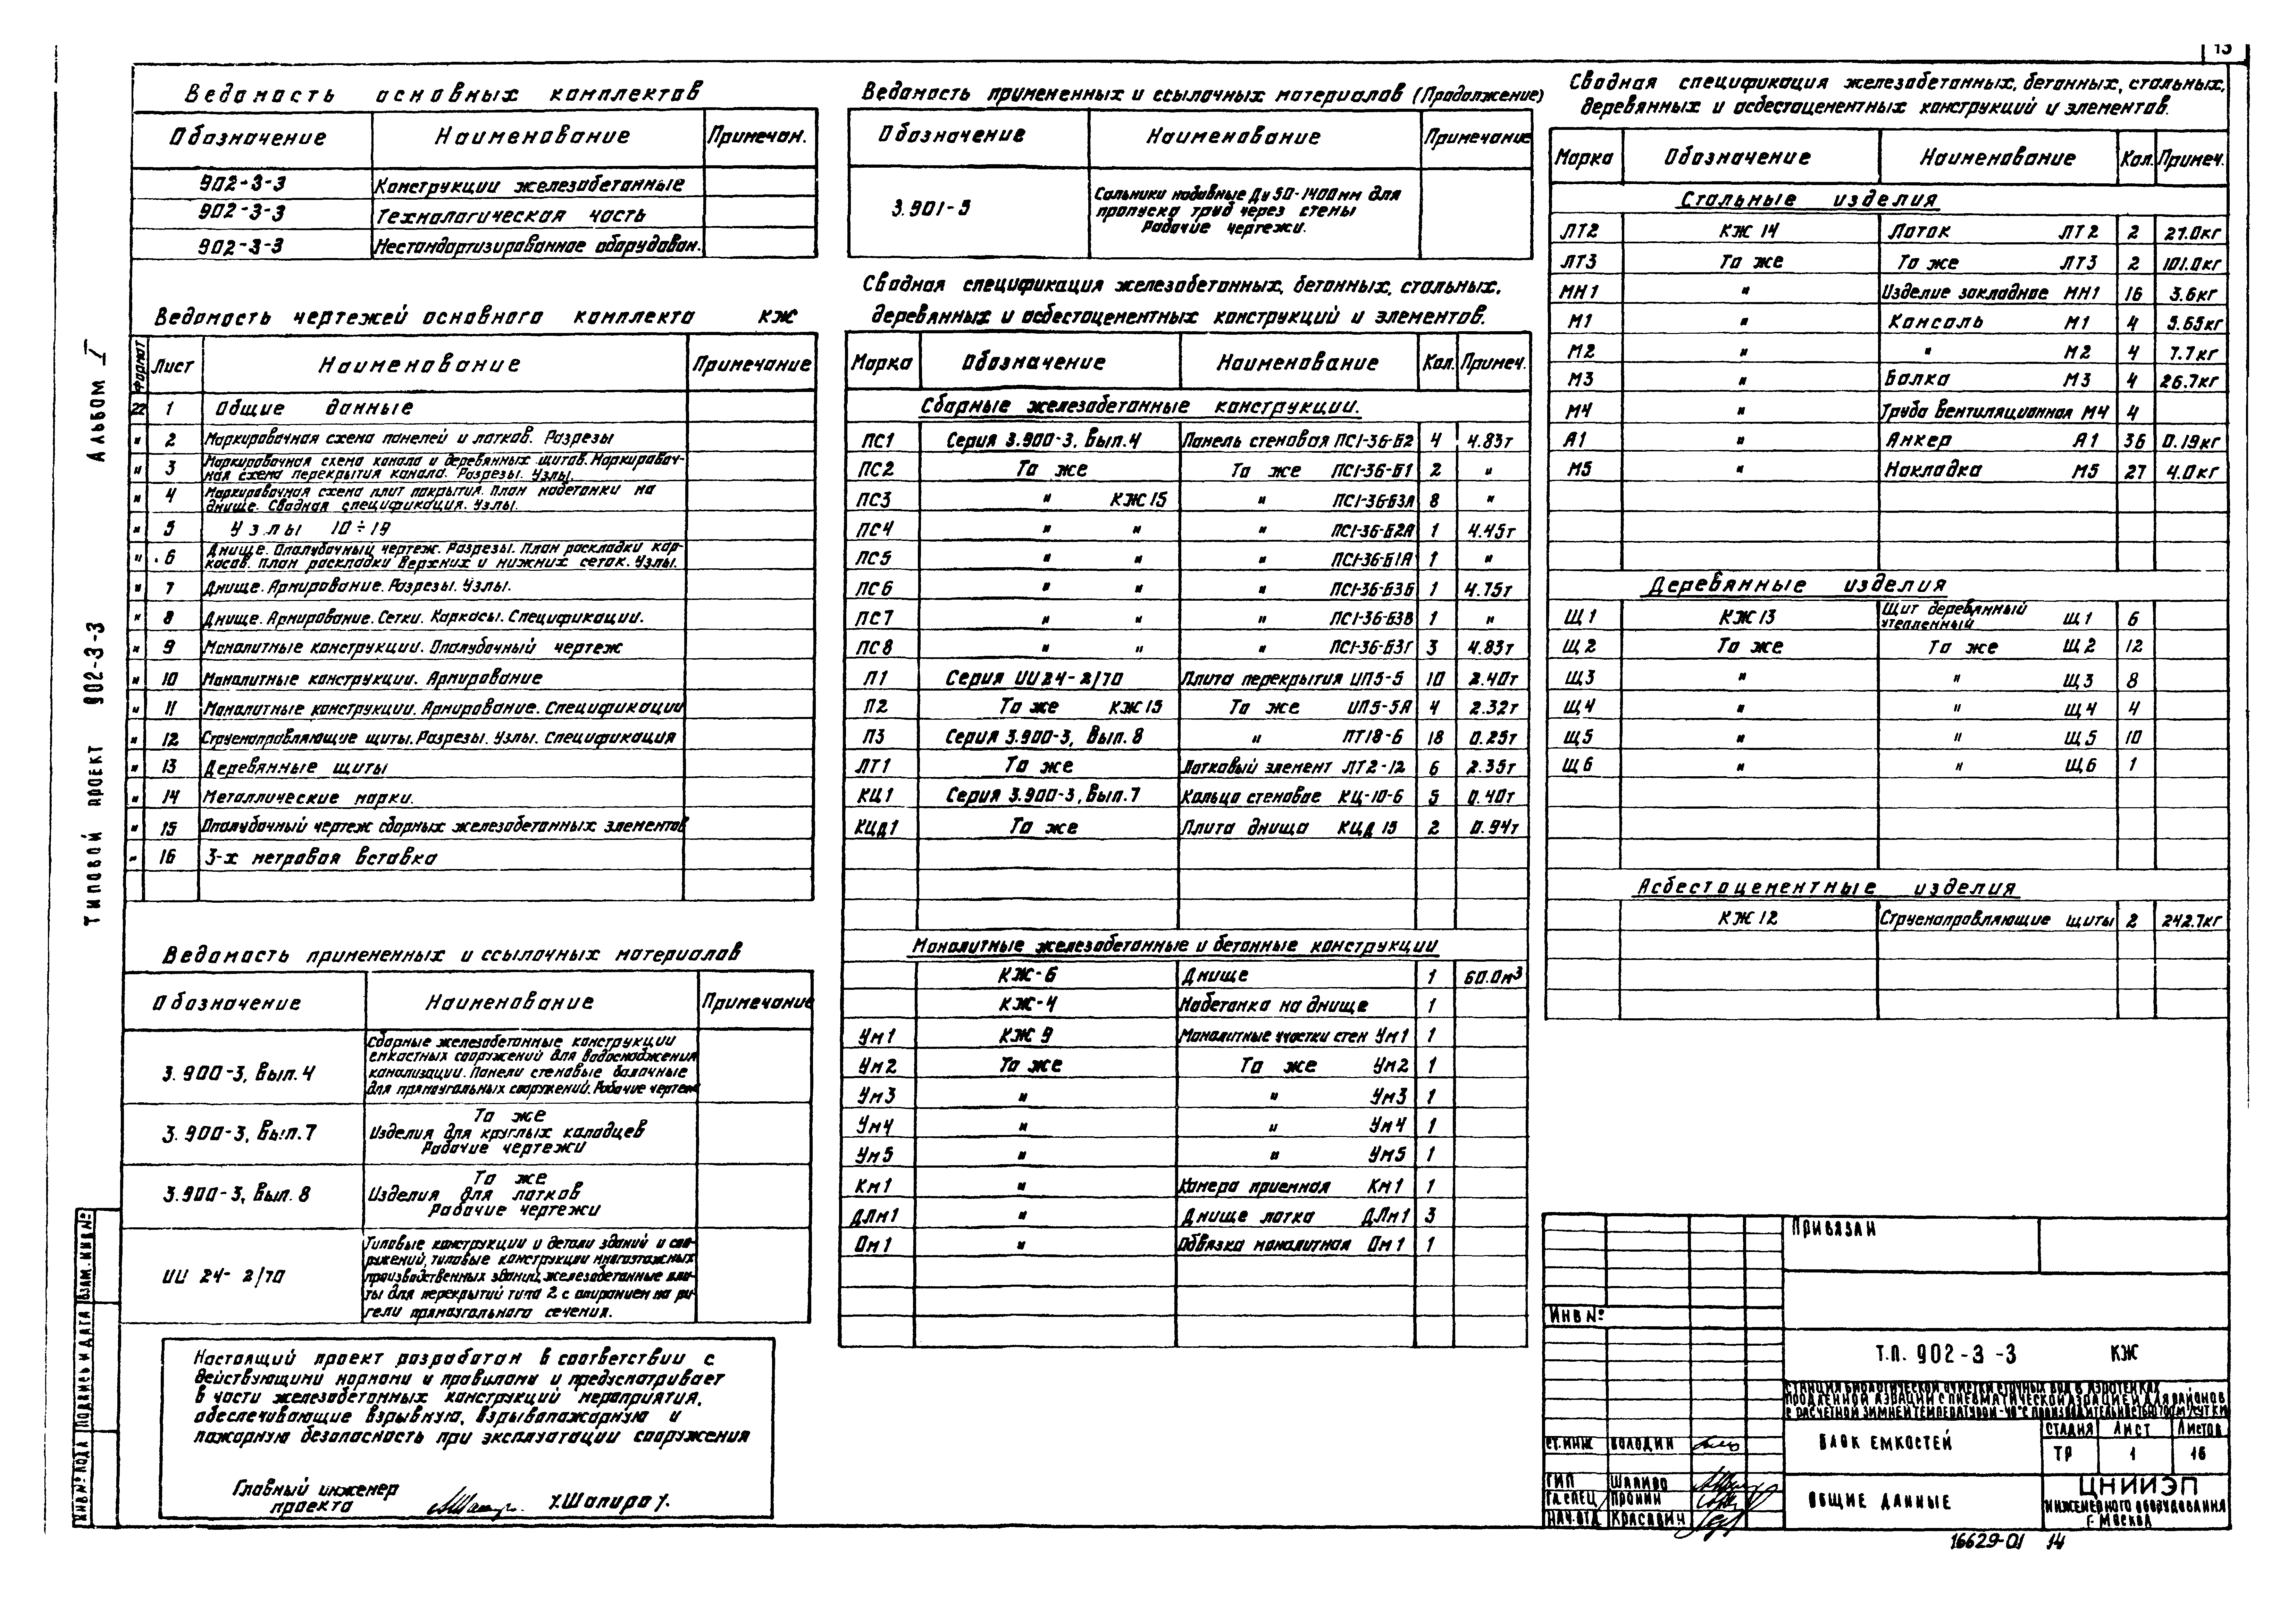 13
Ведомость основных комплектов
Обозначение Наименование Примечан.
902-3-3 Конструкции железобетонные
902-3-3 Технологическая часть
902-3-3 Нестандартизированное оборудован.
Ведомость чертежей основного комплекта КЖ
Формат Лист Наименование Примечание
22 1 Общие данные
" 2 Маркировочная схема панелей и лотков. Разрезы
" 3 Маркировочная схема канала и деревянных щитов. Маркировоч-
ная схема перекрытия канала. Разрезы. Узлы.
" 4 Маркировочная схема плит покрытия. План набетонки на
днище. Сводная спецификация. Узлы.
" 5 Узлы 10÷19
" 6 Днище. Опалубочный чертеж. Разрезы. План раскладки кар-
касов. план раскладки верхних и нижних сеток. Узлы.
" 7 Днище. Армирование. Разрезы. Узлы.
" 8 Днище. Армирование. Сетки. Каркасы. Спецификации.
" 9 Монолитные конструкции. Опалубочный чертеж
" 10 Монолитные конструкции. Армирование
" 11 Монолитные конструкции. Армирование. Спецификации
" 12 Струенаправляющие щиты. Разрезы. Узлы. Спецификация
" 13 Деревянные щиты
" 14 Металлические марки.
" 15 Опалубочный чертеж сборных железобетонных элементов
" 16 3-х метровая вставка
Ведомость примененных и ссылочных материалов
Обозначение Наименование Примечание
3.900-3, Вып.4 Сборные железобетонные конструкции
емкостных сооружений для водоснабжения
канализации. Панели стеновые балочные
для прямоугольных сооружений. Рабочие чертежи
3.900-3, Вып.7 То же
Изделия для круглых колодцев
Рабочие чертежи
3.900-3, Вып. 8 То же
Изделия для лотков
Рабочие чертежи
ИИ 24-2/70 Типовые конструкции и детали зданий и соо-
ружений, типовые конструкции многоэтажных
производственных зданий, железобетонные пли-
ты для перекрытий типа 2 с опиранием на ри-
гели прямоугольного сечения.
Настоящий проект разработан в соответствии с
действующими нормами и правилами и предусматривает
в части железобетонных конструкций мероприятия,
обеспечивающие взрывную, взрывопожарную и
пожарную безопасность при эксплуатации сооружения
Главный инженер
проекта /Шапиро/.
Ведомость примененных и ссылочных материалов (Продолжение)
Обозначение Наименование Примечание
3.901-5 Сальники набивные Ду 50-1400мм для
пропуска труб через стены
Рабочие чертежи.
Сводная спецификация железобетонных, бетонных, стальных,
деревянных и асбестоцементных конструкций и элементов.
Марка Обозначение Наименование Кол. Примеч.
Сборные железобетонные конструкции.
ПС1 Серия 3.900-3, Вып.4 Панель стеновая ПС1-36-Б2 4 4.83т
ПС2 То же То же ПС1-36-Б1 2 "
ПС3 " КЖ15 " ПС1-36-Б3А 8 "
ПС4 " " " ПС1-36-Б2А 1 4.45т
ПС5 " " " ПС1-36-Б1А 1 "
ПС6 " " " ПС1-36-Б3Б 1 4.75т
ПС7 " " " ПС1-36-Б3В 1 "
ПС8 " " " ПС1-36-Б3Г 3 4.83т
П1 Серия ИИ24-2/70 Плита перекрытия ИП5-5 10 2.40т
П2 То же КЖ15 То же ИП5-5А 4 2.32т
П3 Серия 3.900-3, Вып. 8 " ПТ18-6 18 0.25т
ЛТ1 То же Лотковый элемент ЛТ2-12 6 2.35т
КЦ1 Серия 3.900-3, Вып.7 Кольцо стеновое КЦ-10-6 5 0.40т
КЦД1 То же Плита днища КЦД 15 2 0.94т
Монолитные железобетонные и бетонные конструкции
КЖ-6 Днище 1 60.0м³
КЖ-4 Набетонка на днище 1
Ум1 КЖ 9 Монолитные участки стен Ум1 1
Ум2 То же То же Ум2 1
Ум3 " " Ум3 1
Ум4 " " Ум4 1
Ум5 " " Ум5 1
Км1 " Камера приемная Км1 1
ДЛм1 " Днище лотка ДЛм1 3
Ом1 " Обвязка монолитная Ом1 1
Сводная спецификация железобетонных, бетонных, стальных,
деревянных и асбестоцементных конструкций и элементов.
Марка Обозначение Наименование Кол. Примеч.
Стальные изделия
ЛТ2 КЖ 14 Лоток ЛТ2 2 27.0кг
ЛТ3 То же То же ЛТ3 2 101.0кг
МН1 " Изделие закладное МН1 16 3.6кг
М1 " Консоль М1 4 5.65кг
М2 " " М2 4 7.7кг
М3 " Балка М3 4 26.7кг
М4 " Труба вентиляционная М4 4
А1 " Анкер А1 36 0.19кг
М5 " Накладка М5 27 4.0кг
Деревянные изделия
Щ1 КЖ13 Щит деревянный
утепленный Щ1 6
Щ2 То же То же Щ2 12
Щ3 " " Щ3 8
Щ4 " " Щ4 4
Щ5 " " Щ5 10
Щ6 " " Щ6 1
Асбестоцементные изделия
КЖ12 Струенаправляющие щиты 2 242.7кг
Привязан
Инв №
Т.П. 902-3-3 КЖ
Станция биологической очистки сточных вод в аэротенках
продленной аэрации с пневматической аэрацией для районов
с расчетной зимней температурой -40°С производительностью 700м³/сутки
Блок емкостей
Стадия Лист Листов
ТР 1 16
Общие данные
ЦНИИЭП
инженерного оборудования
г. Москва
Ст. инж Володин
ГИП Шапиро
Гл. спец Пронин
Нач. отд Красавин
16629-01 14
Альбом I
Типовой проект 902-3-3
Взам. инв №
Подпись и дата
Инв № подл